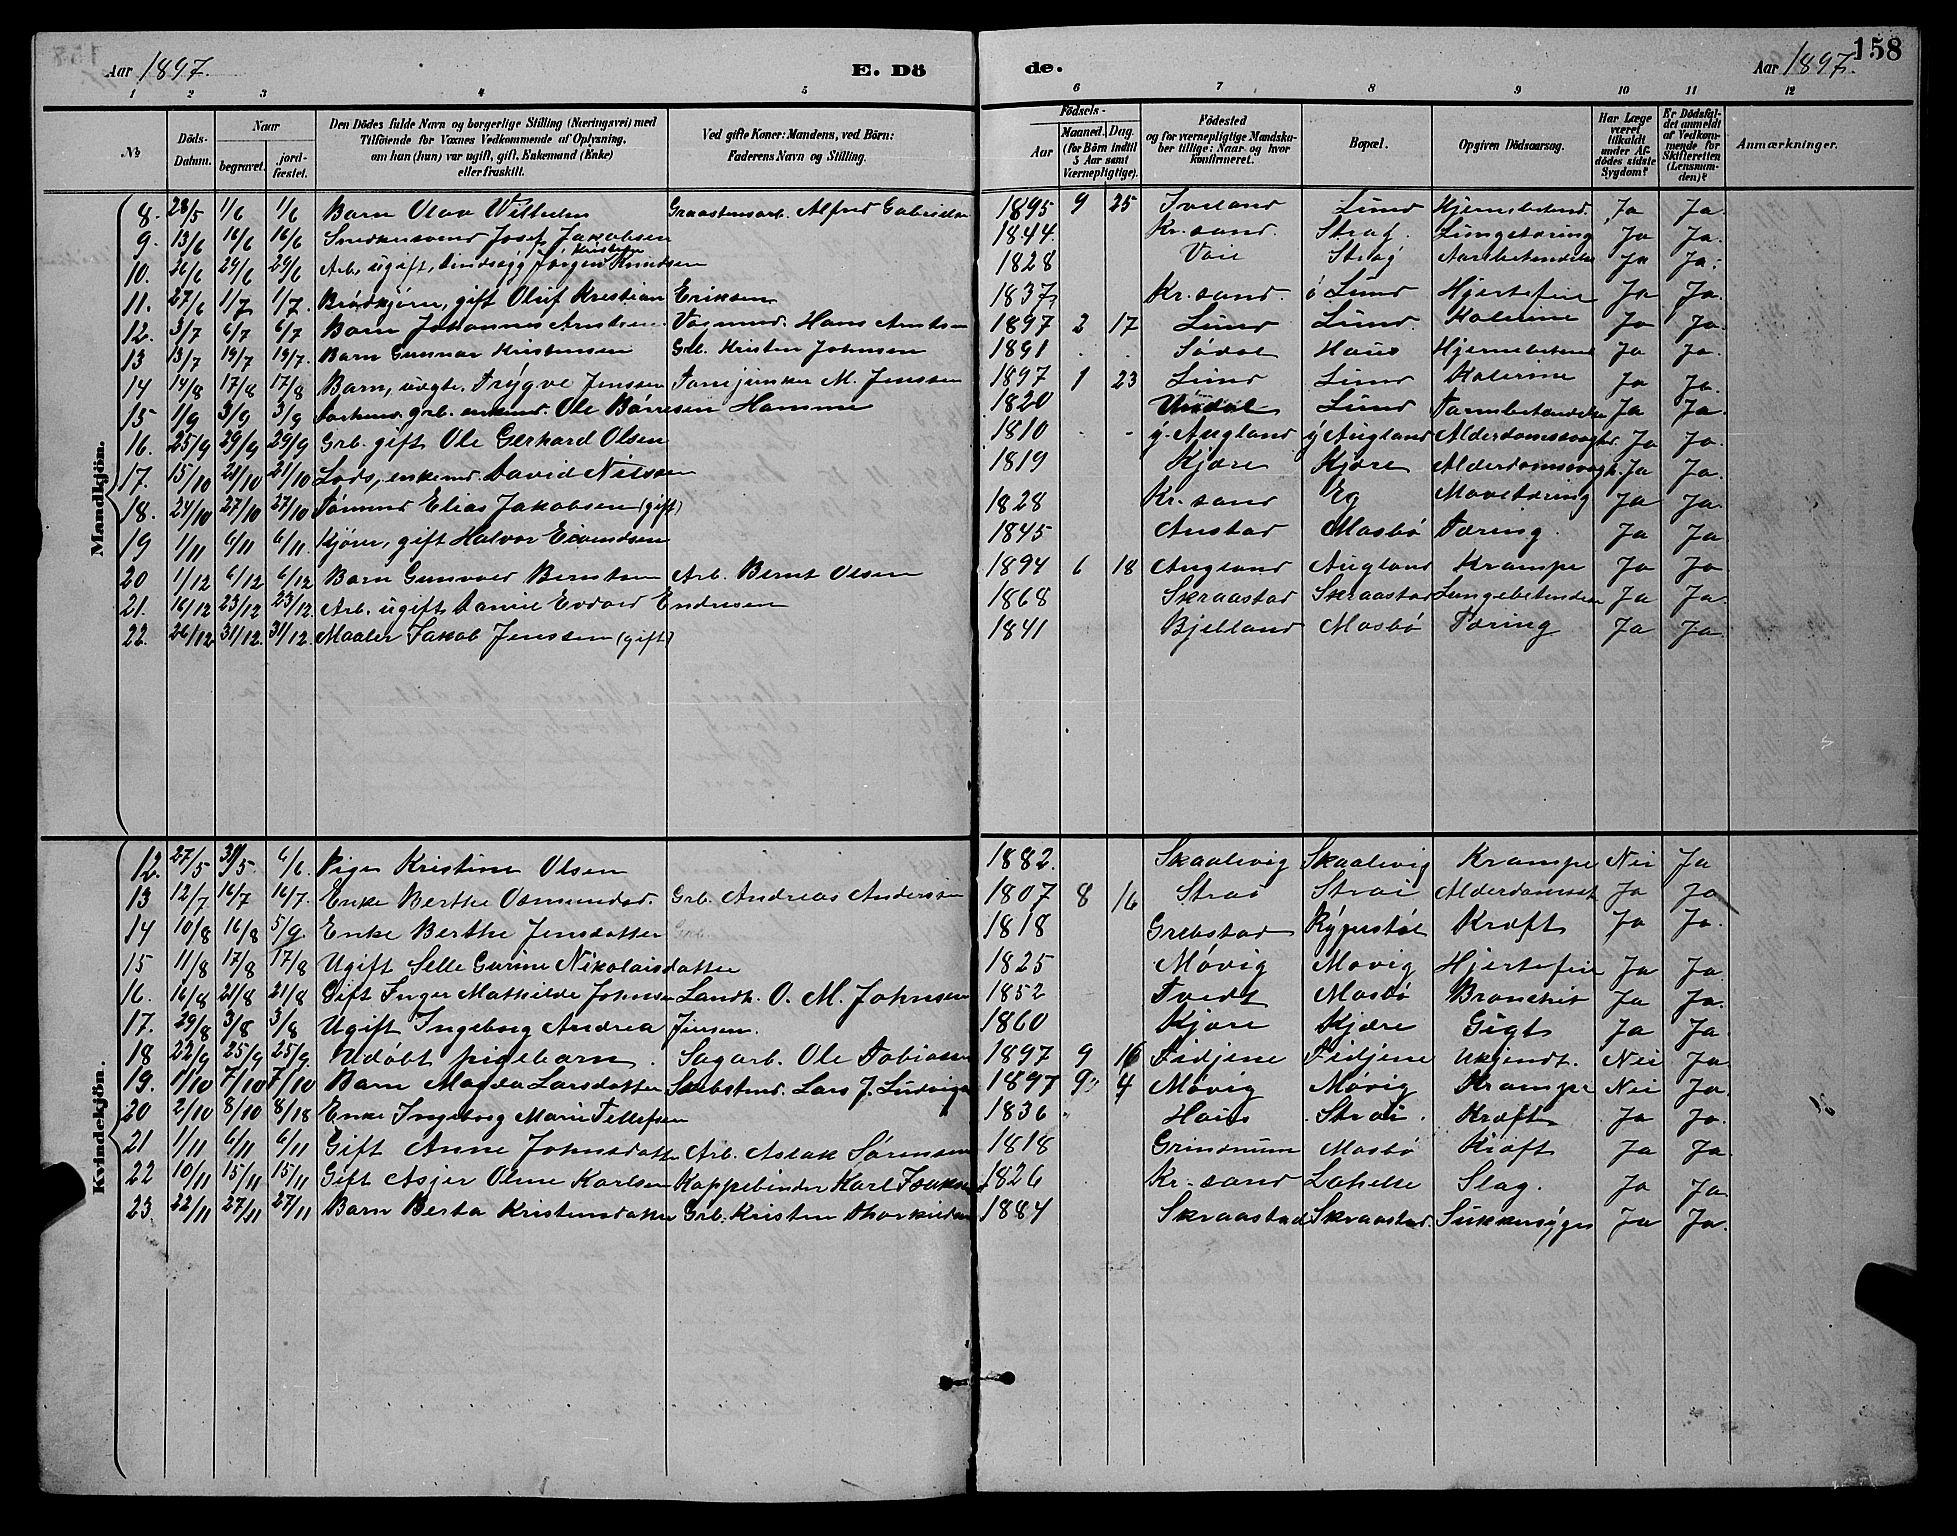 158
Aar 1897. E. Dö de. Aar 1897.
1 2 3 4 5 6 7 8 9 10 11 12
№ Döds-Datum. Naar begravet. jordfæstet. Den Dödes fulde Navn og borgerlige Stilling (Næringsvei) med Tilföiende for Voxnes Vedkommende af Oplysning, om han (hun) var ugift, gift, Enkemand (Enke) eller fraskilt. Ved gifte Koner: Mandens, ved Börn: Faderens Navn og Stilling. Födsels- Aar Maaned. Dag. (for Börn indtil 5 Aar samt Værnepligtige). Födested og for værnepligtige Mandskaber tillige: Naar og hvor konfirmeret. Bopæl. Opgiven Dödsaarsag. Har Læge været tilkaldt under Afdödes sidste Sygdom? Er Dödsfaldet anmeldt af Vedkommende for Skifteretten (Lensmanden)? Anmærkninger.
Mandkjön.
8. 28/5 1/6 1/6 Barn Olav Wilhelm Graastensarb. Alfred 1895 9 25 Iveland Lund Hjernebetend. Ja Ja.
9. 13/6 16/6 16/6 Snedkersvend Josef Jakobsen 1844. Kr.sand. Strag. Lungetæring Ja Ja.
10. 26/6 29/6 29/6 Arb. ugift, Jörgen Kristian Knudsen 1828 Voie Strag Ja Ja.
11. 27/6 1/7 1/7. gift Oluf Kristian Eriksen 1837, Kr.sand. ö Lund Hjertefeil Ja Ja.
12. 3/7 6/7 6/7 Barn Johannes Arntsen. Vognmd. Hans Arntsen 1897 2 17 Lund Lund. Kolerine Ja Ja.
13 13/7 19/7 19/7. Barn Gunnar Kristensen Grb. Kristen Johnsen 1891 . . Sødal Haus Hjernebetend Ja Ja.
14 14/8 17/8 17/8 Barn, uægte. Trygve Jenssen M. Jenssen 1897 1 23 Lund Lund Kolerine Ja Ja.
15 1/9 3/9 3/9 grb. enkemd. Ole Børresen Hamme 1820 Undal Lund Tarmbetændelse Ja Ja.
16. 25/9 29/9 29/9 Grb. gift Ole Gerhard Olsen 1810 . . y. Augland y Augland Alderdomssvaghd. Ja Ja
17. 15/10 21/10 21/10 Lods, enkemd. David Nielsen 1819 Kjære Kjære Alderdomssvagh. Ja Ja.
18. 24/10 27/10 27/10 Tømmd Elias Jakobsen (gift) 1828 Kr.sand Eg Mavetæring Ja Ja.
19 1/11 6/11 6/11 Kjører, gift Halvor Eivendsen 1845 Austad Mosbø Tæring. Ja Ja
20 1/12 6/12 6/12 Barn Gunvald Berntsen Arb. Bernt Olsen 1894 6 18 Augland Augland Krampe Ja Ja
21. 16/12 23/12 23/12. Arb. ugift Daniel Edvard Endresen 1868 Skraastad Skraastad Lungebetendelse Ja Ja.
22. 26/12 31/12. 31/12. Maaler Jakob Jenssen (gift) 1841 Bjelland Mosbø Tæring Ja Ja.
Kvindekjön.
12. 27/5 31/5. 6/6. Pige Kristine Olsen 1882. Skaalevig Skaalevig Krampe Nei Ja
13 12/7 16/7 16/7. Enke Berthe Osmundsd. Grb. Andreas Andersen 1807 8 16 Strai Strai Alderdomssv Ja Ja
14 10/8 16/8 5/9. Enke Berthe Jensdatter 1818 Grebstad Kræft Ja Ja.
15 11/8 17/8 17/8 Ugift Selle Gurine Nikolaisdatter 1825 Møvig Møvig Hjertefeil Ja Ja.
16. 16/8 21/8 21/8. Gift Inger Mathilde Johnsen Landh. O. M. Johnsen 1852 Tvedt Mosbø Bronchit Ja Ja.
17. 29/8 3/8 3/8 Ugift Ingeborg Andrea Jensen. 1860 Kjære Kjære Gigt Ja Ja
18 22/9 25/9 25/9. Udøbt pigebarn. Sagarb. Ole Tobiassen 1897 9 16 Fidjene Fidjene Ukjendt. Nei Ja
19. 1/10 7/10 7/10 Barn Magda Larsdatter Selvstmd. Lars J. Ludvigsen 1897 9 4 Møvig Møvig Krampe Nei Ja.
20 2/10 8/10 8/18 Enke Ingeborg Marie Tellefsen 1836 Haus Strai. Kræft Ja Ja.
21 1/11 6/11 6/11 Gift Anne Johnsdatter Arb. Aslak Sørensen 1818 Grindrum Mosbø Kræft Ja Ja.
22 10/11 15/11 15/11 Gift Asjer Oline Karlsen Karl 1826 Kr.sand Lahelle Slag. Ja Ja
23. 22/11 27/11 27/11 Barn Berta Kristensdatter Grb. Kristen Thorkildsen 1884 Skraastad Skraastad. Sukkersyge Ja Ja.